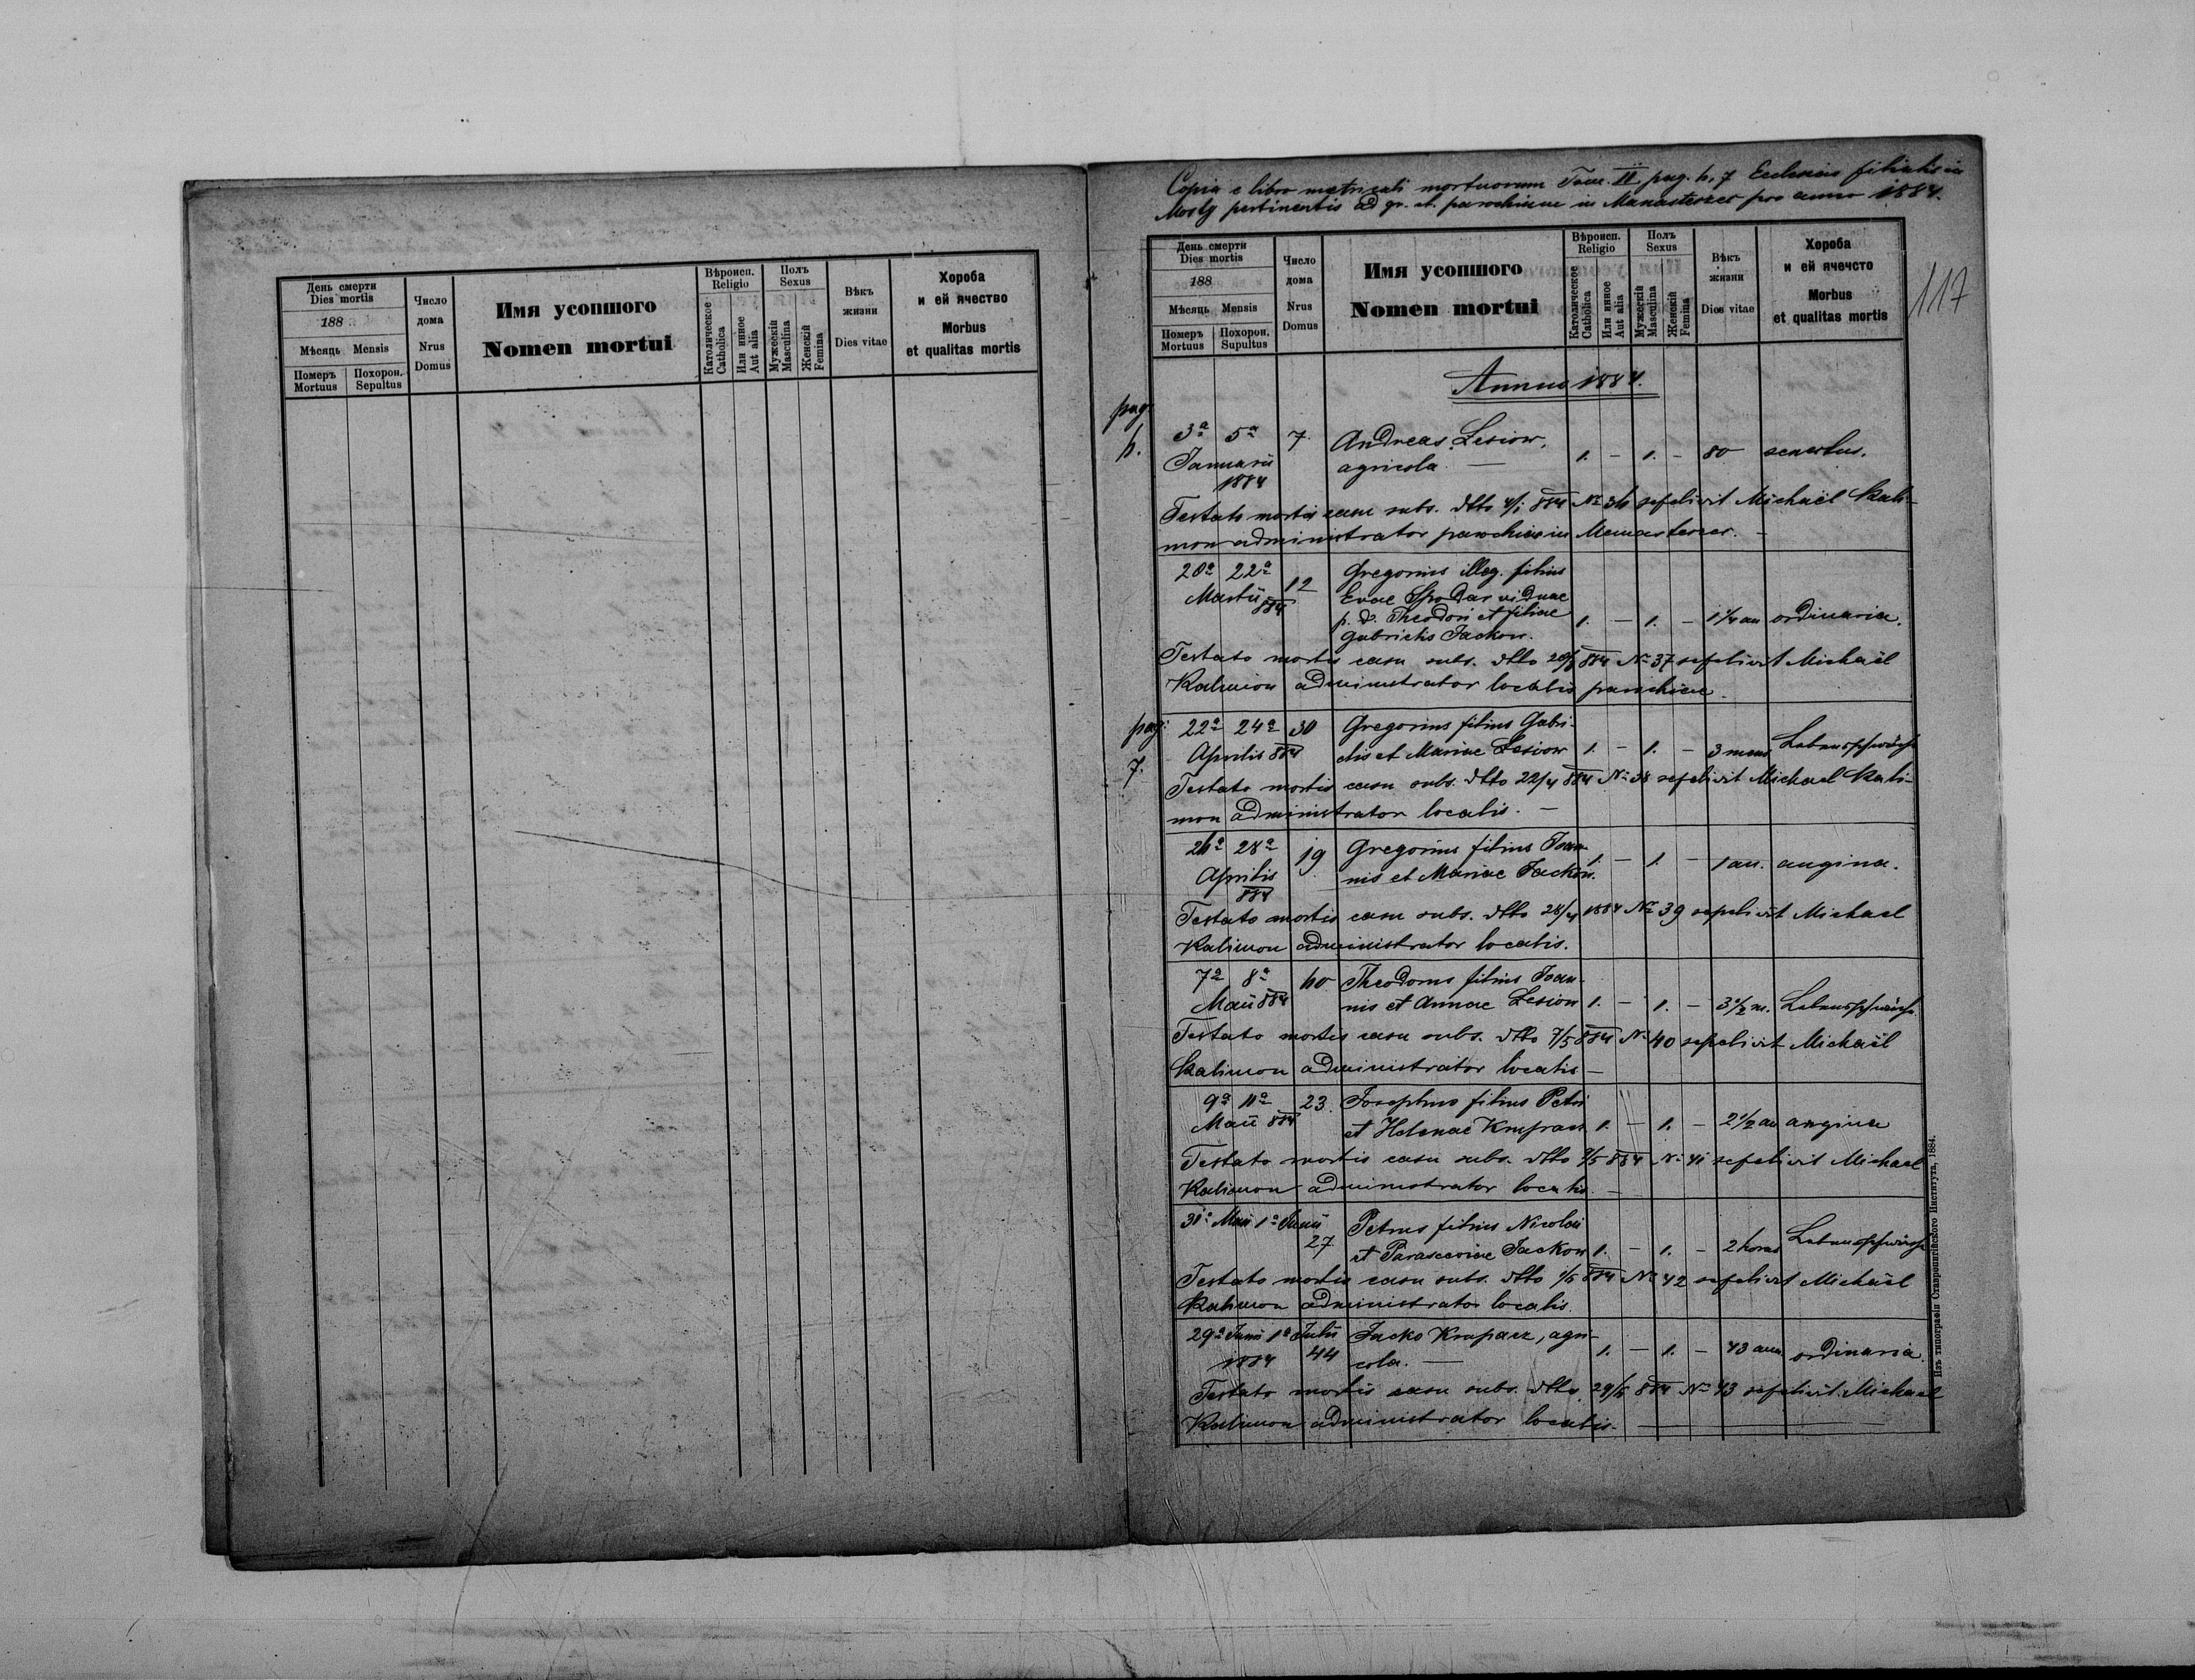 День смерти
Dies mortis
188
Мѣсяць Mensis
Померъ Mortuus
Похорон. Sepultus
Число дома
Nrus Domus
Имя усопшого
Nomen mortui
Вѣроисп.
Religio
Католическое
Catholica
Или инное
Aut alia
Полъ
Sexus
Мужескій
Masculina
Женскій
Femina
Вѣкъ
жизни
Dies vitae
Хороба
и ей ячество
Morbus
et qualitas mortis
Copia e libro metricali mortuorum Tom. II pag. 6, 7 Ecclesiae filialis in
Mosty pertinentis ad gr. ct. parochiam in Manasterzec pro anno 1884.
117
День смерти
Dies mortis
188
Мѣсяць Mensis
Померъ Mortuus
Похорон. Supultus
Число
дома
Nrus
Domus
Имя усопшого
Nomen mortui
Вѣроисп.
Religio
Католическое
Catholica
Или инное
Aut alia
Полъ
Sexus
Мужескій
Masculina
Женскій
Femina
Вѣкъ
жизни
Dies vitae
Хороба
и ей ячечсто
Morbus
et qualitas mortis
Annus 1884.
pag.
6.
3a 5a 7. Andreas Lesiow,
Januarii agricola — 1. – 1. – 80 senectus.
1884
Testato mortis casu subs. dtto 4/1 884 No 36 sepelivit Michaël Kali-
mon administrator parochiae in Manasterzec. –
20a 22a 12 Gregorius illeg. filius
Martii 884 Evae Spodar viduae
p. d. Theodori et filiae 1. – 1. – 1 1/4 an ordinaria.
Gabrielis Jackow.
Testato mortis casu subs. dtto 884 No 37 sepelivit Michaël
Kalimon administrator localis parochiae.
pag:
7.
22a 24a 30 Gregorius filius Gabri-
Aprilis 884 elis et Mariae Lesiow 1. – 1. – 3 mens Lebensschwäche
Testato mortis casu subs. dtto 22/4 884 No 38 sepelivit Michael Kali-
mon administrator localis. –
26a 28a 19 Gregorius filius Joan-
Aprilis nis et Mariae Jackow. 1. – 1. – 1 an. angina.
884
Testato mortis casu subs. dtto 28/4 1884 No 39 sepelivit Michael
Kalimon administrator localis.
7a 8a 60 Theodorus filius Joan-
Maii 884 nis et Annae Lesiow 1. – 1. – 3 1/2 m. Lebensschwäche.
Testato mortis casu subs. dtto 7/5 884 No 40 sepelivit Michaël
Kalimon administrator localis –
9a 11a 23. Josephus filius Petri
Maii 884 et Helenae 1. – 1. – 2 1/2 an angina
Testato mortis casu subs. dtto 884 No 41 sepelivit Michael
Kalimon administrator localis. –
31a Maii 1a Junii Petrus filius Nicolai
27 et Parasceviae Jackow 1. – 1. – 2 horas Lebensschwäche
Testato mortis casu subs. dtto 884 No 42 sepelivit Michaël
Kalimon administrator localis.
29a Junii 1a Julii Jacko Krupacz, agri-
1884 44 cola. — 1. – 1. – 43 ann. ordinaria.
Testato mortis casu subs. dtto 29/6 884 No 43 sepelivit Michael
Kalimon administrator localis. —
Изъ типографіи Ставропигійского Института, 1884.